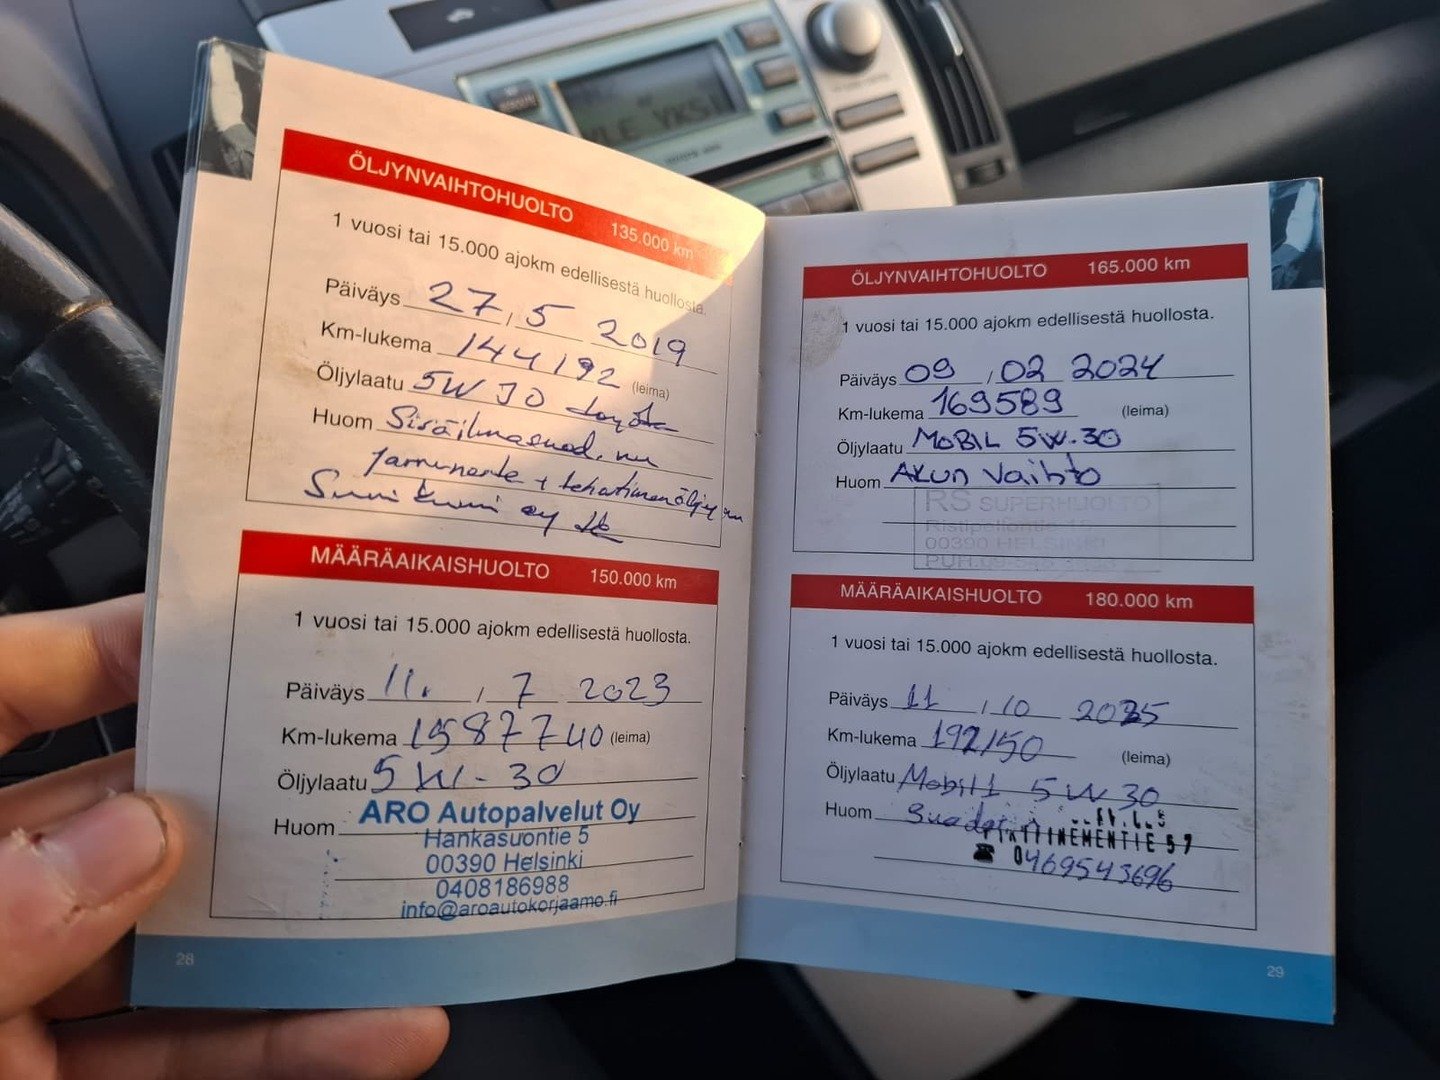 YLE YKSI
ÖLJYNVAIHTOHUOLTO 135.000 km
1 vuosi tai 15.000 ajokm edellisestä huollosta.
Päiväys 27 / 5 2019
Km-lukema 144192 (leima)
Öljylaatu 5W 30 toyota
Huom Sisäilmasuod.
jarruneste +
oy
MÄÄRÄAIKAISHUOLTO 150.000 km
1 vuosi tai 15.000 ajokm edellisestä huollosta.
Päiväys 11. / 7 2023
Km-lukema (leima)
Öljylaatu 5W-30
Huom
ARO Autopalvelut Oy
Hankasuontie 5
00390 Helsinki
0408186988
info@aroautokorjaamo.fi
28
ÖLJYNVAIHTOHUOLTO 165.000 km
1 vuosi tai 15.000 ajokm edellisestä huollosta.
Päiväys 09 / 02 2024
Km-lukema 169589 (leima)
Öljylaatu MOBIL 5W-30
Huom AKUN Vaihto
RS SUPERHUOLTO
00390 HELSINKI
MÄÄRÄAIKAISHUOLTO 180.000 km
1 vuosi tai 15.000 ajokm edellisestä huollosta.
Päiväys 11 / 10 2025
Km-lukema 192150 (leima)
Öljylaatu Mobil 1 5W30
Huom
57
☎ 0469543696
29